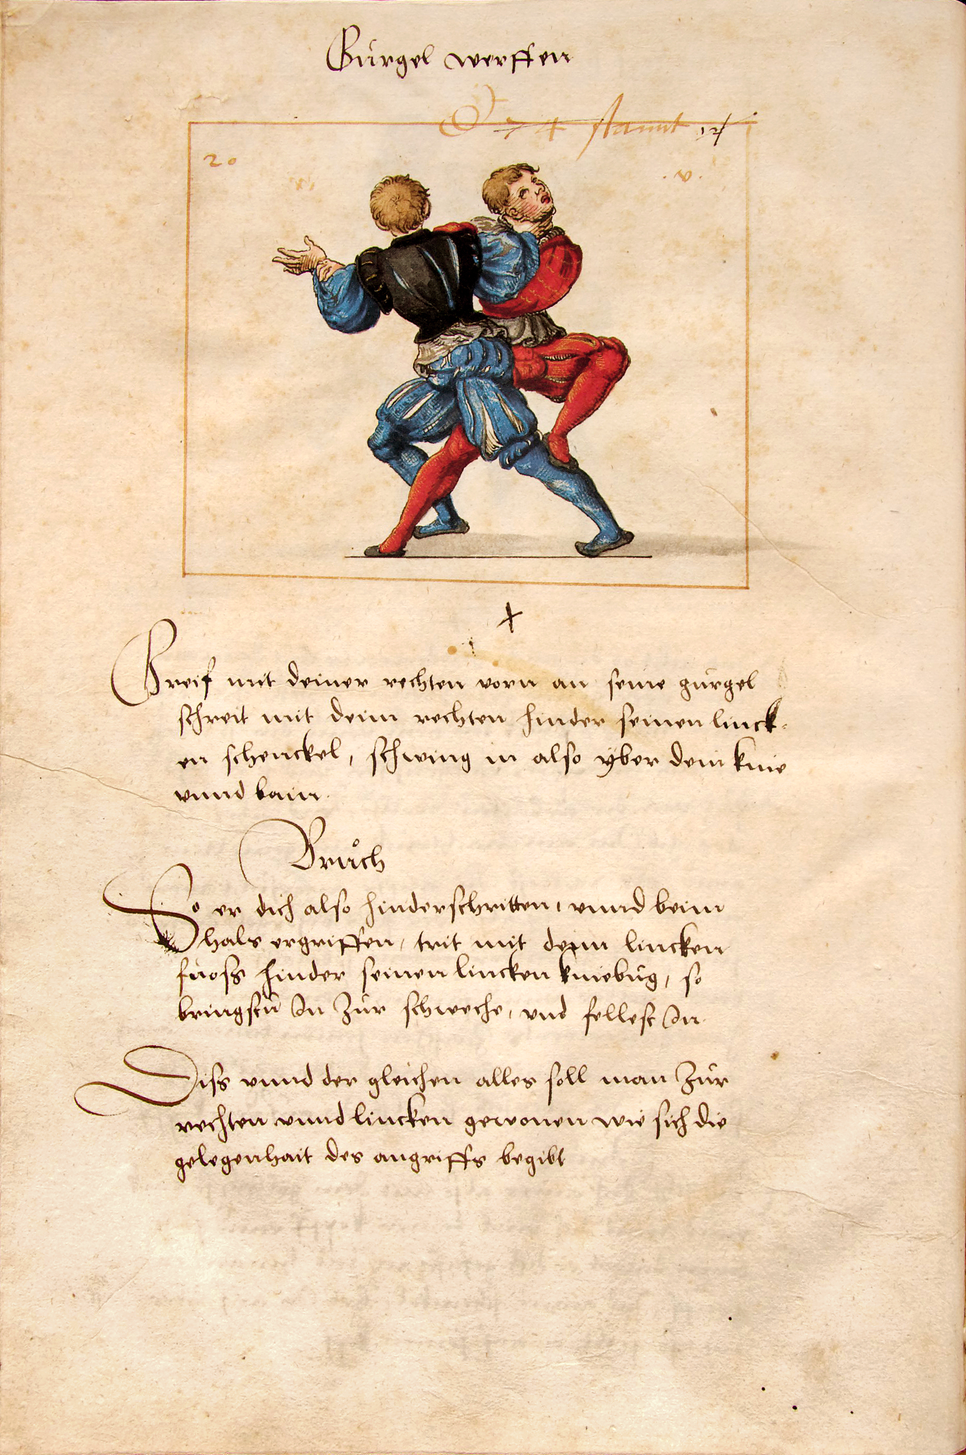 Gürgel werffen
20
.v.
Greif mit deiner rechten vorn an seine gürgel
schreit mit deim rechten hinder seinen linck-
en schenckel, schwing in also yber dein knie
vnnd bain.
Brůch
So er dich also hinderschritten, vnnd beim
hals ergriffen, trit mit deim lincken
fuoss hinder seinen lincken kniebüg, so
bringstü In Zür schweche, vnd fellest In.
Diss vnnd der gleichen alles soll man Zür
rechten vnnd lincken gewonen wie sich die
gelegenhait des angriffs begibt